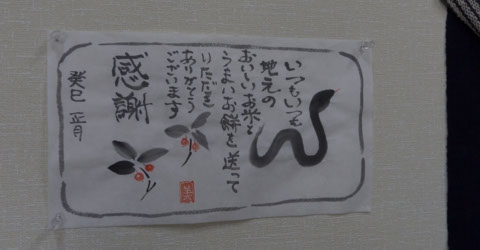 いつもいつも
地元の
おいしいお米と
うまいお餅を送って
いただき
ありがとう
ございます
感謝
癸巳 正月